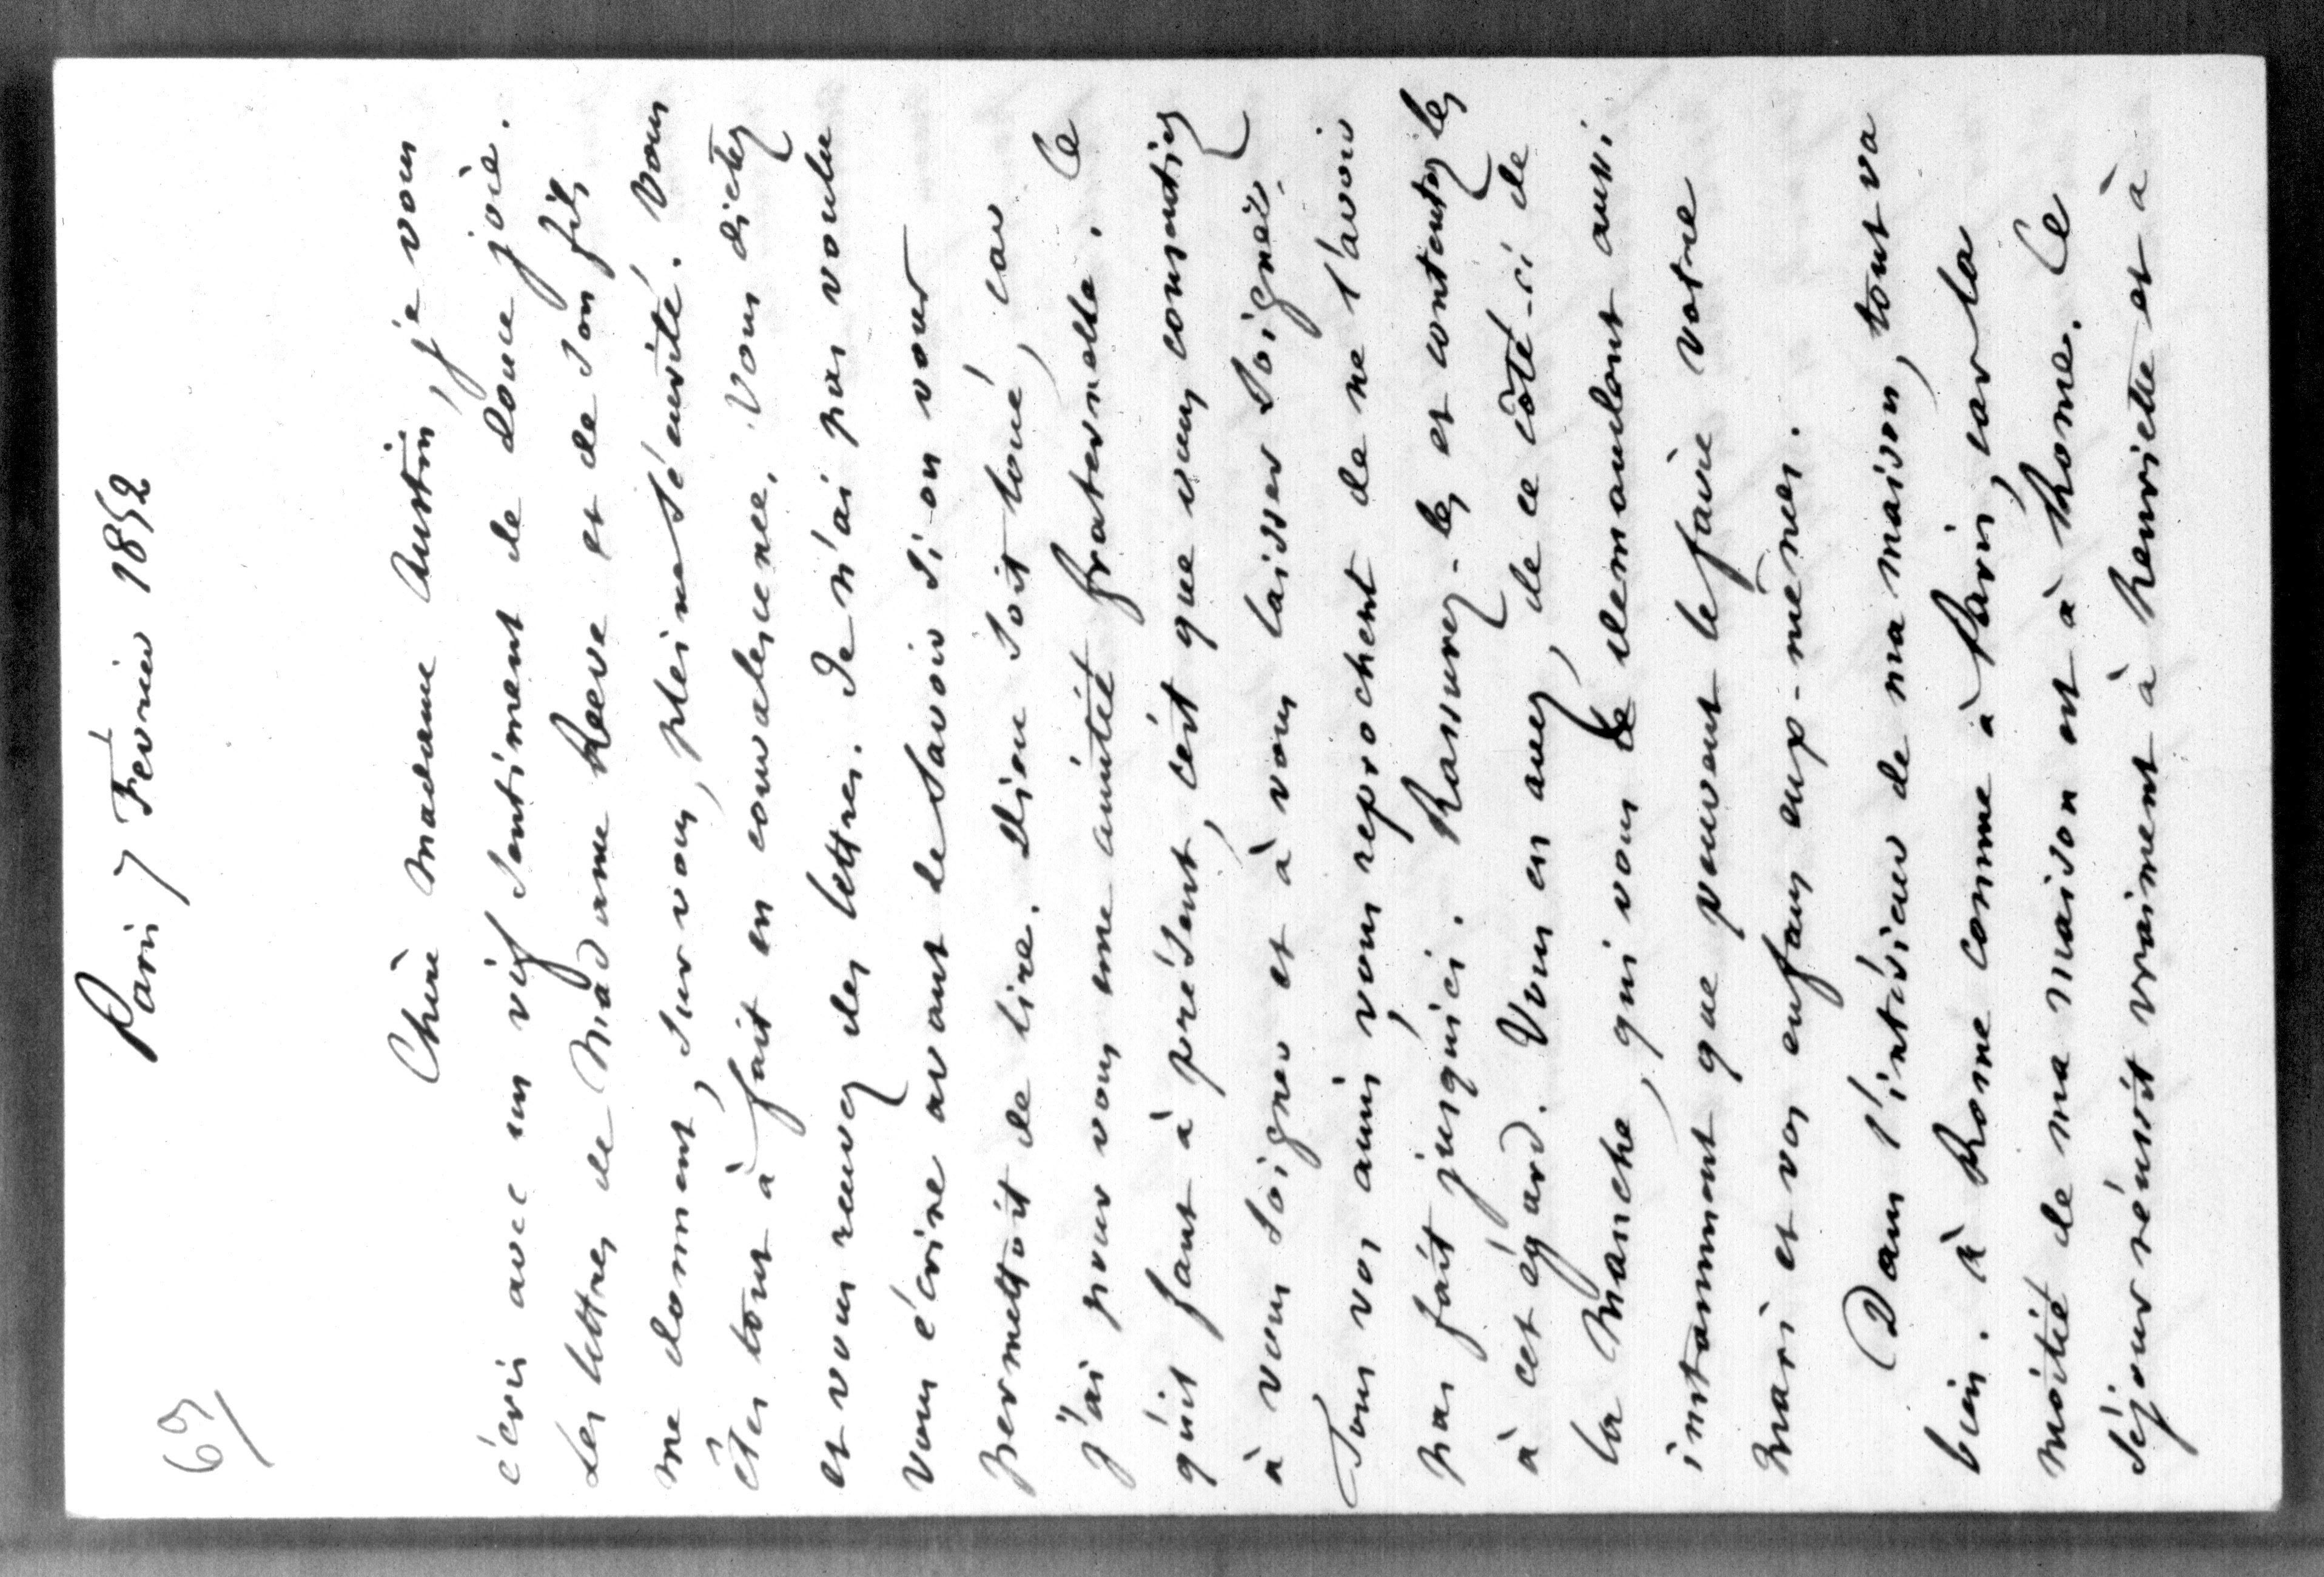 69/
Paris 7 Février 1852
Chère Madame Austin, je vous
écris avec un vif sentiment de douce joie.
Les lettres de Madame Reeve et de son fils
me donnent, sur vous, pleine sécurité. Vous
êtes tout à fait en convalescence. Vous dictez
et vous recevez des lettres. Je n'ai pas voulu
vous écrire avant de savoir si on vous
permettoit de lire. Dieu soit loué, car
j'ai pour vous une amitié fraternelle. Ce
qu'il faut à présent, c'est que vous consentiez
à vous soigner et à vous laisser soigner.
Tous vos amis vous reprochent de ne l'avoir
pas fait jusqu'ici. Rassurez-les et contentez les
à cet égard. Vous en avez, de ce côté-ci de
la Manche, qui vous le demandent aussi
instamment que peuvent le faire votre
mari et vos enfans eux-mêmes.
Dans l'intérieur de ma maison, tout va
bien. à Rome comme à Paris, car la
moitié de ma maison est à Rome. Ce
séjour réussit vraiment à Henriette et à